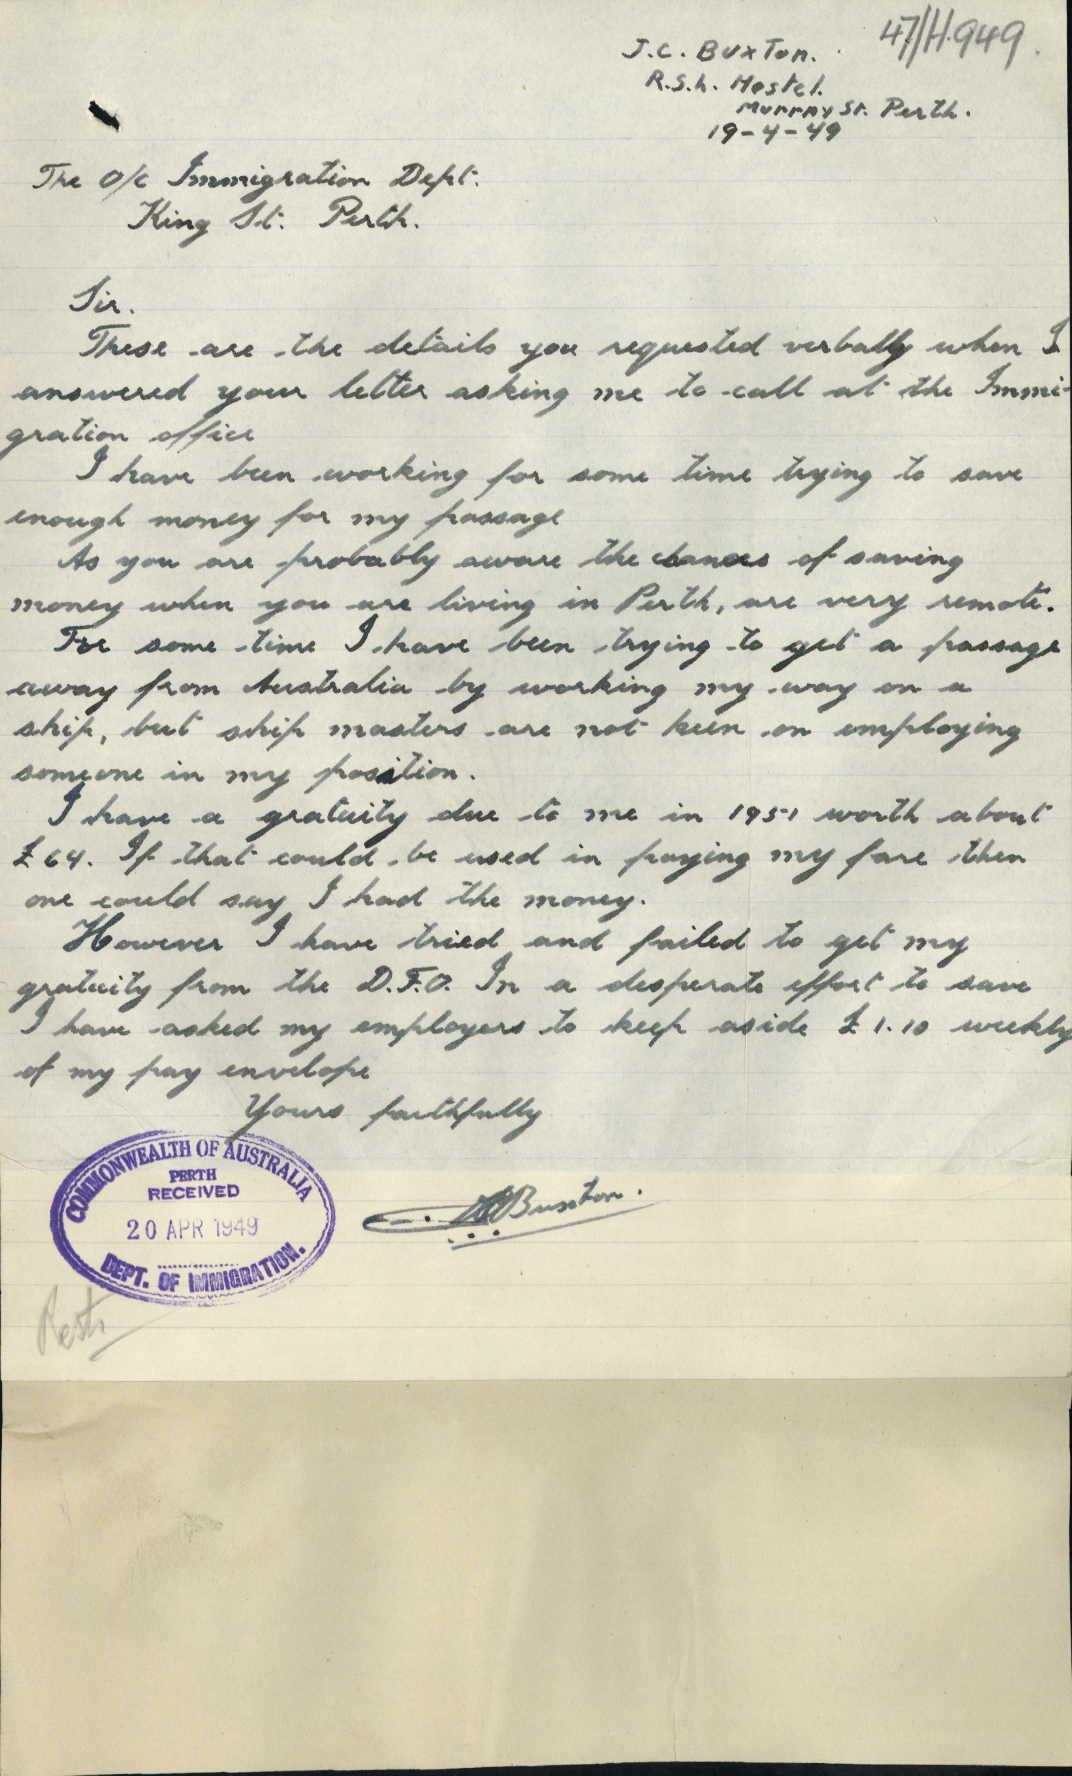 47/H.949
J.C. Buxton.
R.S.L. Hostel.
Murray St. Perth.
19-4-49
The O/C Immigration Dept.
King St. Perth.
Sir.
These are the details you requested verbally when I
answered your letter asking me to call at the Immi-
gration office
I have been working for some time trying to save
enough money for my passage
As you are probably aware the chances of saving
money when you are living in Perth, are very remote.
For some time I have been trying to get a passage
away from Australia by working my way on a
ship, but ship masters are not keen on employing
someone in my position.
I have a gratuity due to me in 1951 worth about
£64. If that could be used in paying my fare then
one could say I had the money.
However I have tried and failed to get my
gratuity from the D.F.O. In a desperate effort to save
I have asked my employers to keep aside £1.10 weekly
of my pay envelope
Yours faithfully
Buxton.
COMMONWEALTH OF AUSTRALIA
PERTH
RECEIVED
20 APR 1949
DEPT. OF IMMIGRATION.